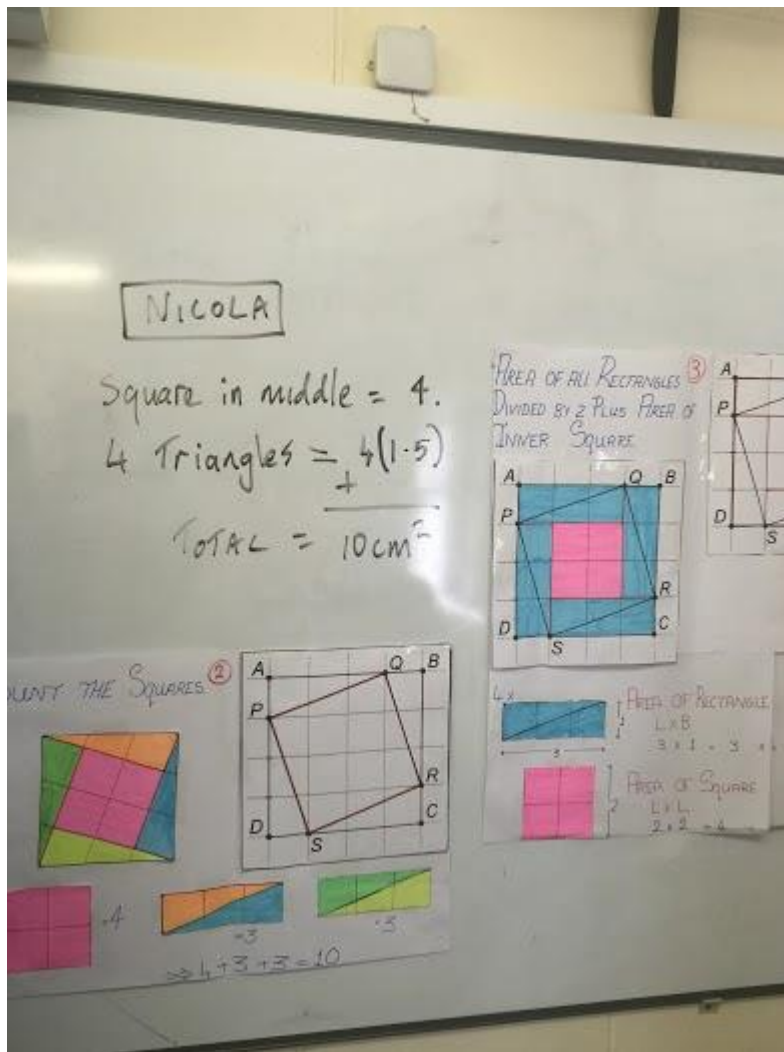 NICOLA
Square in middle = 4.
4 Triangles = 4(1.5)
+
TOTAL = 10cm²
AREA OF ALL RECTANGLES ③
DIVIDED BY 2 PLUS AREA OF
INNER SQUARE
A Q B
P
R
D S C
A
P
D S
4x
1
3
AREA OF RECTANGLE
L x B
3 x 1 = 3
2
AREA OF SQUARE
L x L
2 x 2 = 4
UNT THE SQUARES ②
A Q B
P
R
D S C
=4
=3
=3
⇒ 4+3+3=10